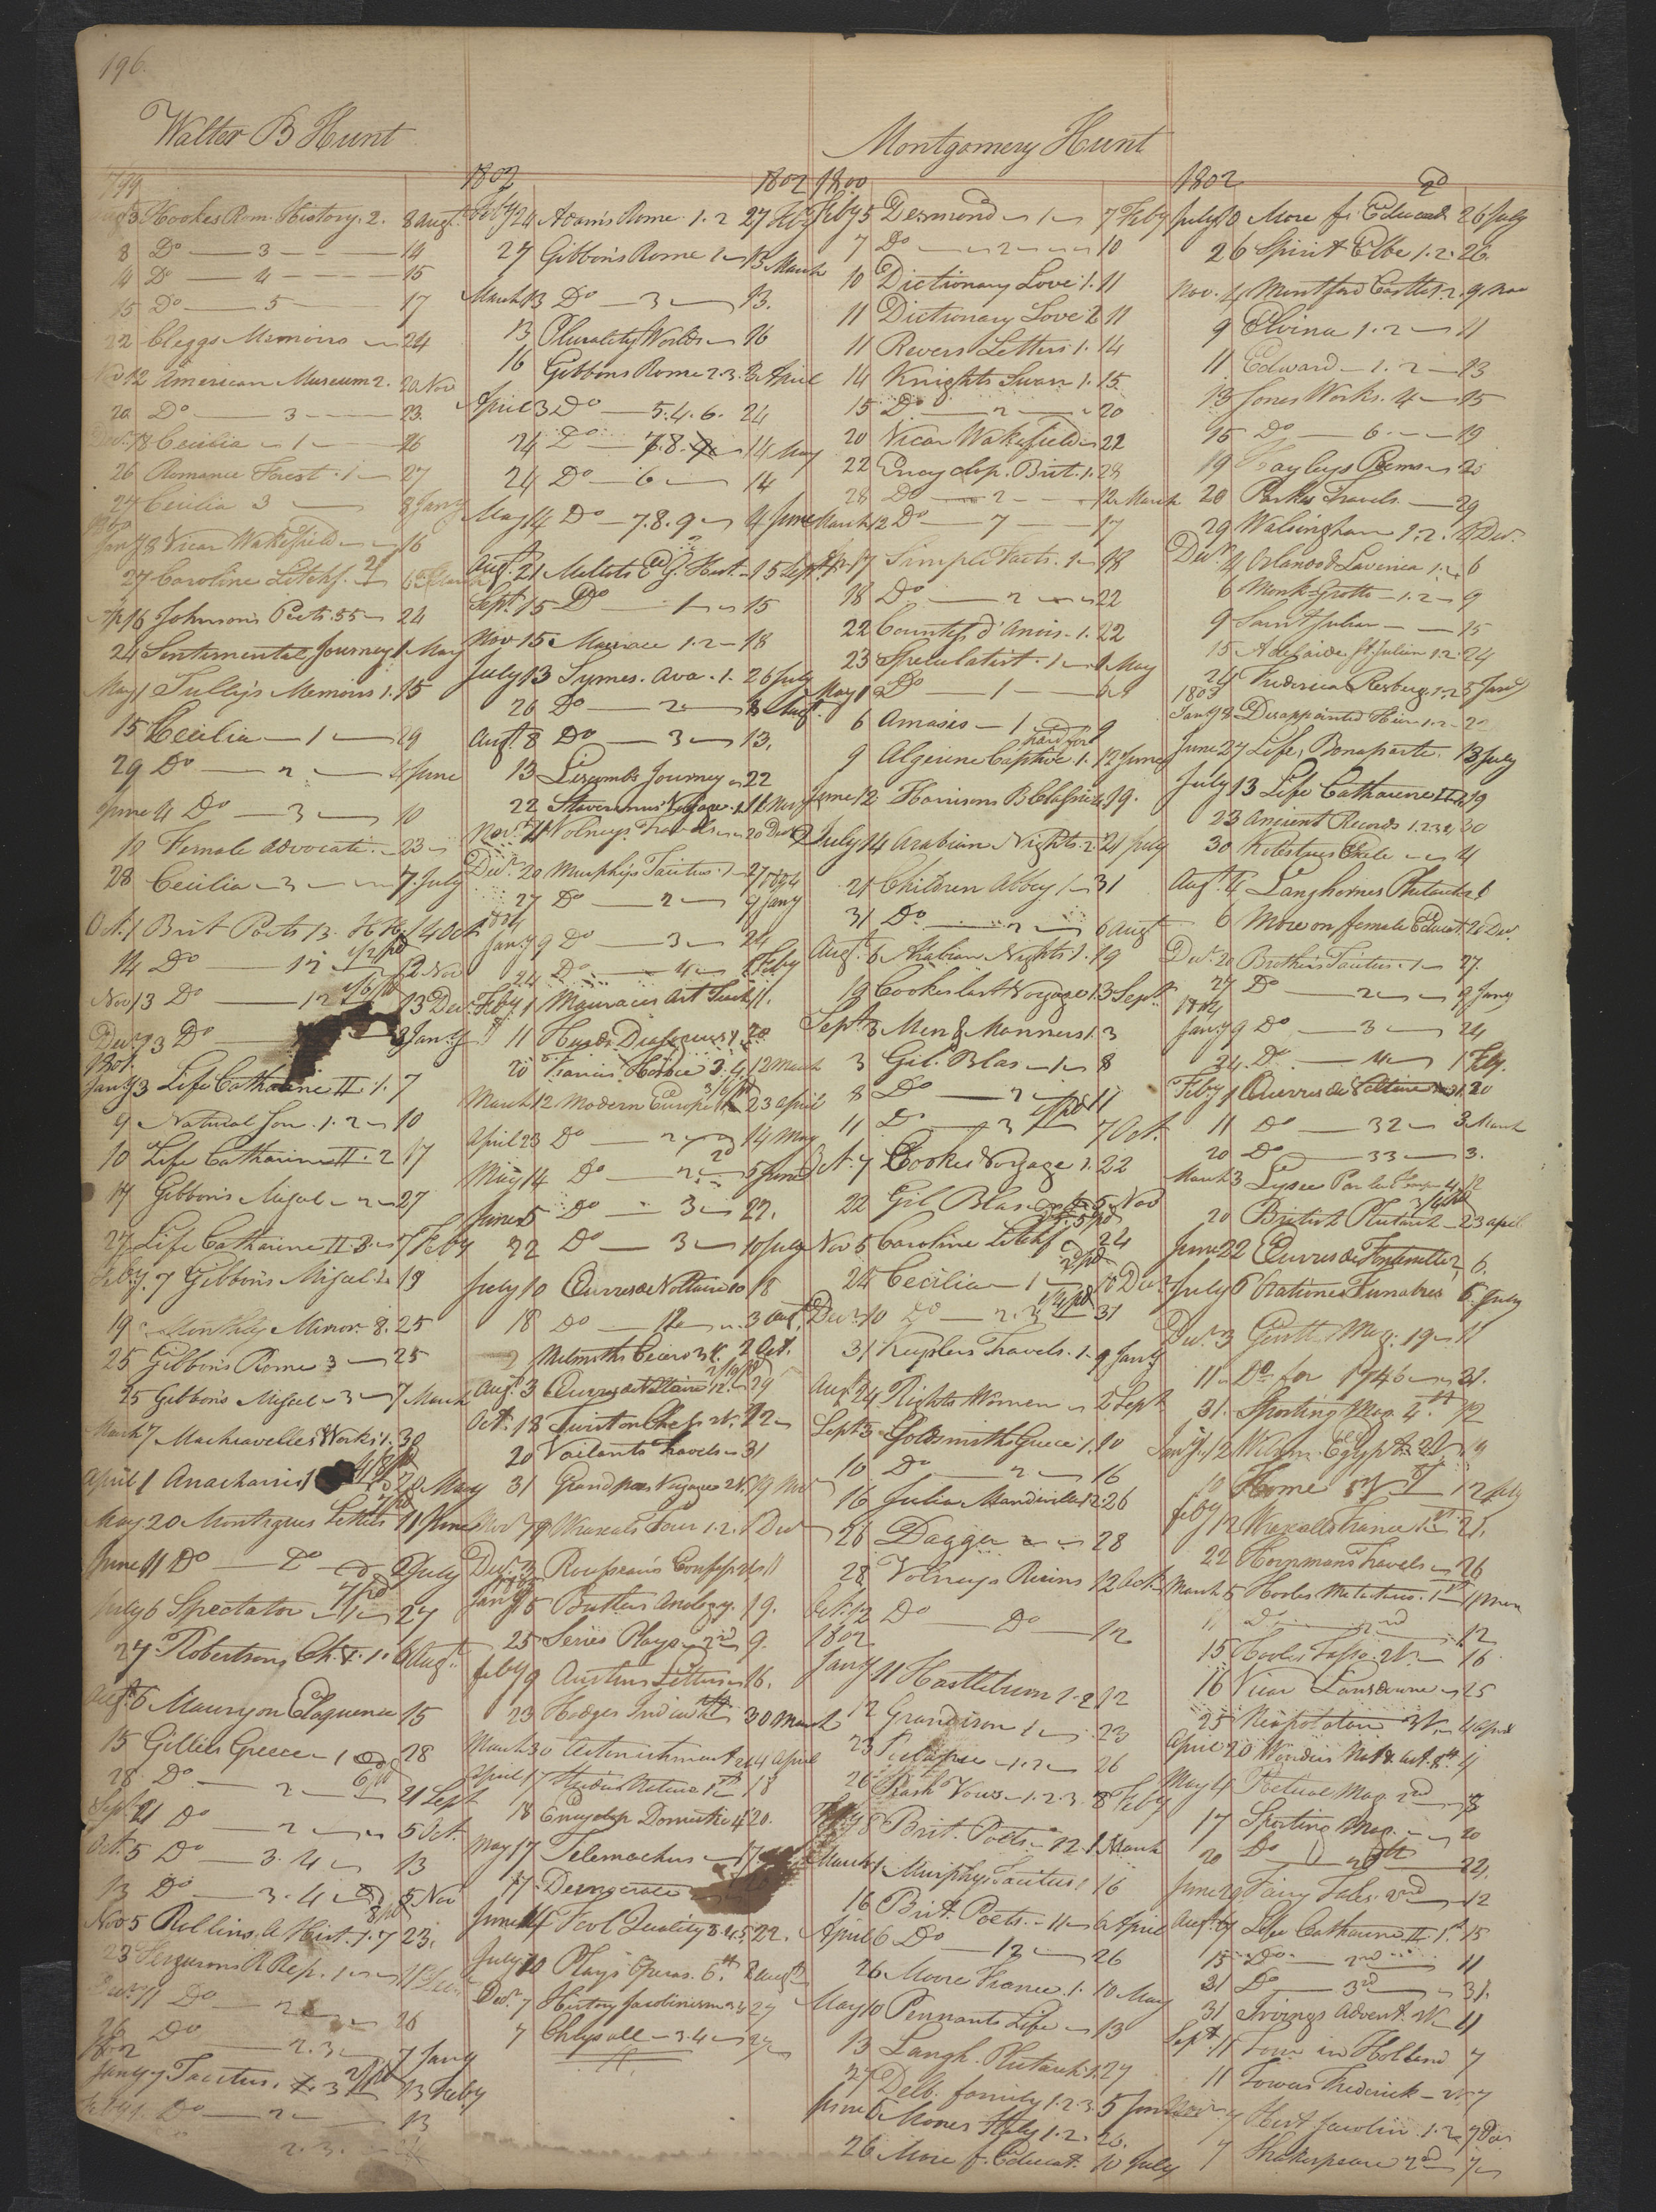 196.
Walter B Hunt
1799
Augt 3 Hookes Rom. History. 2. 8 Augt
8 Do — 3 — 14
14 Do — 4 — 15
15 Do — 5 — 17
22 Cleggs Memoirs 24
Nov 12 American Museum 2. 20 Nov
20 Do — 3 — 23
Decr 18 Cecilia 1 — 26
26 Romance Forest. 1 — 27
27 Cecilia 3 — 8 Jany
Jany 8 Vicar Wakefield — 16
27 Caroline Litchf.
Ap 16 Johnson's Poets. 55 — 24
24 Sentimental Journey 1 May
May 1 Tully's Memoirs 1. 15
15 Cecilia — 1 — 29
29 Do — 2 — 4 June
June 4 Do — 3 — 10
10 Female Advocate. — 23
28 Cecilia — 3 — 7 July
Oct. 1 Brit Poets 13. 14 Oct
14 Do — 12 — 12 Nov
Nov 13 Do — 12 13 Decr
Decr 13 Do — 3 Jany
1801.
Jany 3 Life Catharine II. 1. 7
9 Natural Son. 1. 2 — 10
10 Life Catharine II. 2 17
17 Gibbon's Miscel — 2 — 27
27 Life Catharine II. 3 — 7 Feby
Feby. 7 Gibbon's Miscel. 2 19
19 Monthly Mirror. 8. 25
25 Gibbon's Rome 3 — 25
25 Gibbon's Miscel — 3 — 7 March
March 7 Machiavelles Works 1. 30
April 1 Anacharsis 20 May
May 20 Montagues Letters 11 June
June 11 Do — Do — 2 July
July 6 Spectator — 1 — 27
27 Robertsons Ch. V. 1. 6 Augt
Augt 6 Maury on Eloquence 15
15 Gillies Greece — 1 28
28 Do — 2 — 21 Sept
Sept 21 Do — 2 — 5 Oct.
Oct. 5 Do — 3. 4 — 13
13 Do — 3. 4 — 5 Nov
Nov 5 Rollins A Hist. 1. 7 23.
23 Fergusons R Rep. 1
Decr 11 Do — 2 — 26
26 Do — 2. 3 — 7 Jany
1802
Jany 7 Tacitus. 3 13 Feby
Do — 2 — 13
2. 3.
1802 1802
Feby 24 Adam's Rome. 1. 2 27 Feby
27 Gibbon's Rome 1 — 13 March
March 13 Do — 3 — 13.
13 Plurality Worlds — 16
16 Gibbons Rome 2. 3. 3 April
April 3 Do — 5. 4. 6. 24
24 Do — 7. 8. 14 May
24 Do — 6 — 14
May 14 Do — 7. 8. 9 — 4 June
Augt. 21 Millots E. G. Hist. — 15 Sept
Sept. 15 Do — 1 — 15
Nov 15 1. 2 — 18
July 13 Symes. Ava. 1. 26 July
26 Do — 2 — 8 Augt.
Augt 8 Do — 3 — 13.
13 Liscombs Journey — 22
22 Stavorinus Voyage
Novr 11 Volneys Travels 20 Decr
Decr 20 Murphys Tacitus. 1 — 27
27 Do — 2 — 9 Jany
1804
Jany 9 Do — 3 — 24
24 Do — 4 — 1 Feby
Feby. 1 11.
11 Hurds Dialogues 1 20
20 Francis Horace 3. 4 12 March
March 12 Modern Europe 23 April
April 23 Do — 2 — 14 May
May 14 Do — 2 — 5 June
June 5 Do — 3 — 22.
22 Do — 3 — 10 July
July 10 Œuvres de Voltaire 10 18
18 Do — 12 — 3 Augt.
Melmoths Cicero 3 V. 2 Oct.
Augt. 3 Œuvres de Voltaire 12. 29
Oct. 18 22
20 Vailants Travels — 31
31 Grandpres Voyages 2 V. 19 Nov
Nov 19 Wraxals Tour 1. 2. 1 Decr
Decr. 3 Rousseau's Confess 11
Jany 15 Butlers Analogy. 19.
25 Series Plays — 2nd 9.
Feby 9 16.
23 Hodges India 30 March
March 30 Astonishment 2 V. 4 April
April 17 Studies Nature 1st 18
18 Encyclop Domestic 4 20.
May 17 Telemachus — 17
17. Democrate
June 14 Fool Quality 3. 4. 5 22.
July 10 Plays Operas. 6th 2 Augt
Decr. 7 History Jacobinism 3. 4 27
7 Chrysall — 3. 4 — 27
Montgomery Hunt
1800
Feby 5 Desmond — 1 — 7 Feby
7 Do — 2 — 10
10 Dictionary Love. 1. 11
11 Dictionary Love 2 11
11 Revers Letters 1. 14
14 Knights Swan 1. 15
15 Do — 2 — 20
20 Vicar Wakefield — 22
22 Encyclop. Brit. 1. 28
28 Do — 2 — 12 March
March 12 Do — 7 — 17
Ap. 17 Simple Facts. 1 — 18
18 Do — 2 — 22
22 Countess d'Anois. 1. 22
23 Speculatist. 1 — 1 May
May 1 Do — 1 — 6
6 Amasis — 1. 9
9 Algerine Captive. 1. 12 June
June 12 Harrisons B Classics 4 19.
July 14 Arabian Nights. 2. 21 July
21 Children Abbey 1 — 31
31 Do — 2 — 6 Augt
Augt. 6 Arabian Nights 1. 19
19 Cookes last Voyage 1. 3 Sept.
Sept. 3 Men & Manners 1. 3
3 Gil. Blas — 1 — 8
8 Do — 2 — 11
11 Do — 3 7 Oct.
Oct. 7 Cookes Voyage 1. 22
22 Gil Blas 5 Nov
Nov 5 Caroline Litchf 24
24 Cecilia — 1 — 10 Decr
Decr 10 Do — 2. 3 31
31 Keyslers Travels. 1. 9 Jany
Augt 24 Rights Women — 2 Sept
Sept 3 Goldsmiths Greece 1. 10
10 Do — 2 — 16
16 Julia Mandeville 1. 2. 26
26 Dagger — 28
28 Volneys Ruins 12 Oct.
Oct. 12 Do — Do — 12
1802
Jany 11 Hastlebrun 1. 2. 12
12 Grandison 1 — 23
23 — 1. 2 — 26
26 Rash Vows — 1. 2. 3. 8 Feby
Feby 8 Brit. Poets — 12. 1 March
March 1 Murphys Tacitus 1 16
16 Brit. Poets. — 11 — 6 April
April 6 Do — 12 — 26
26 Moore France. 1. 10 May
May 10 Pennants Life — 13
13 Langh. Plutarch. 1. 27
27 Delb. family 1. 2. 3. 5 June
June 5 Mores Italy 1. 2. 26.
26 More f. Educat. 10 July
1802
July 10 More f. Educat 2d 26 July
26 Spirit Elbe 1. 2. 26.
Nov. 4 Montford Castle 1. 2. 9 Nov
9 Elvina 1. 2 — 11
11 Edward — 1. 2 — 13
13 Jones Works. 4 — 15
15 Do — 6 — 19
19 Hayleys Poems — 20
20 Parkes Travels — 29
29 Walsingham 1. 2. 4 Decr.
Decr. 4 Orlando & Lavinia 1. 2. 6
6 Monk Grotto — 1. 2 — 9
9 Saint Julien — 15
15 Adelaide St. Julien 1. 2. 24
24 Frederica Risberg 1. 2 5 Jany
1803
Jany 8 Disappointed Heir 1. 2. 20
June 27 Life, Bonaparte. 13 July
July 13 Life Catharine II. 19
23 Ancient Records 1. 2. 3. 4 30
30 4
Augt. 4 Langhornes Plutarch 6
6 More on female Educat. 20 Decr.
Decr. 20 Brothers Tacitus. 1 — 27.
27 Do — 2 — 9 Jany
1804
Jany 9 Do — 3 — 24
24 Do — 4 — 1 Feby.
Feby 1 Œuvres de Voltaire 31. 20
11 Do — 32 — 3 March
20 Do — 33 — 3.
March 3
20 British Plutarch — 23 April
June 22 Œuvres de Fontenelle 2 6.
July 6 Orationes Funebres 6. July
Decr. 3 Gentl. Mag. 19 — 11
11 Do for 1746 — 31.
31. Sporting Mag. 4th 12
Jany. 12 Wilson. Egypt
Home 1st 12 Feby
Feby 12 Wraxalls France 1st 21.
22 Travels — 26
March 5 Hooles Metastasio. 1st 11 March
11 Do 2nd 12
15 Hooles Tasso. 2 V. 16
16 Vicar Lansdowne — 25
25 Neapolitan 3 V. 4 April
April 20 Wonders Nat & Art. 8th 4
May 4 Poetical Mag. 2nd 8
17 Sporting Mag. — 20
20 Do 22.
June 29 Fairy Tales 2nd 12
Augt. 9 Life Catharine II. 1st 15
15 Do — 2nd 11
31 Do — 3rd — 31.
31 Irvings Advent. 2 V. 11
Sept. 11 Tour in Holland 7
11 Towers Frederick — 2 V. 7
Nov. 7 Hist. Jacobin. 1. 2. 7 Dec
7 Shakespeare 2nd 7